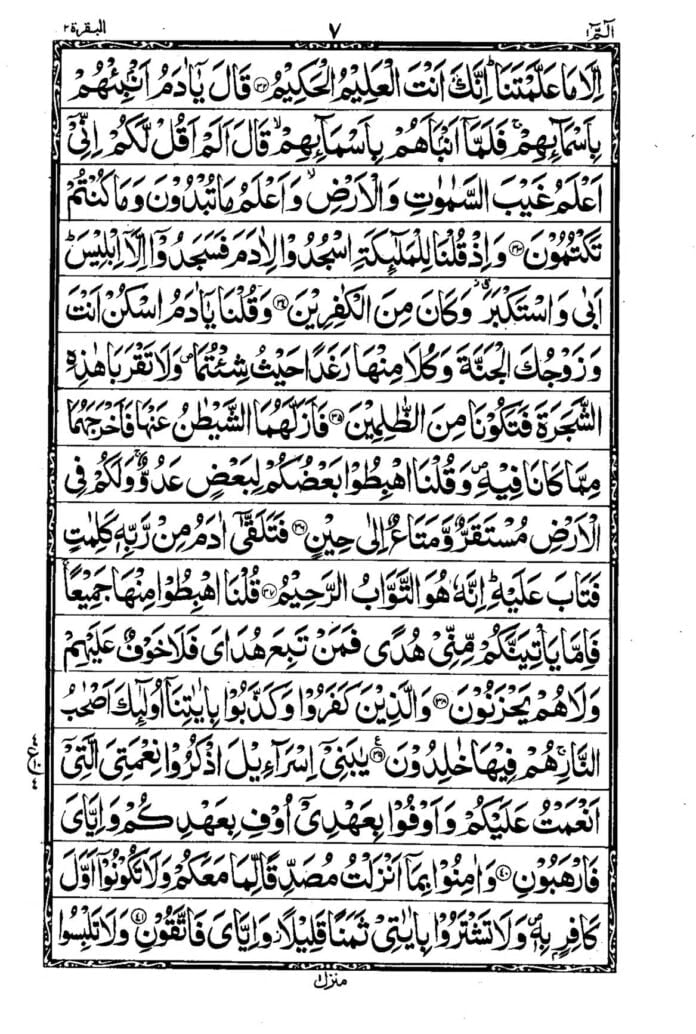 الٓمّٓ ١ ٧ البقرة ٢
اِلَّا مَا عَلَّمْتَنَا ؕ اِنَّكَ اَنْتَ الْعَلِیْمُ الْحَكِیْمُ ﴿۳۲﴾ قَالَ یٰۤاٰدَمُ اَنْۢبِئْهُمْ
بِاَسْمَآىِٕهِمْ ۚ فَلَمَّاۤ اَنْۢبَاَهُمْ بِاَسْمَآىِٕهِمْ ۙ قَالَ اَلَمْ اَقُلْ لَّكُمْ اِنِّیْۤ
اَعْلَمُ غَیْبَ السَّمٰوٰتِ وَ الْاَرْضِ ۙ وَ اَعْلَمُ مَا تُبْدُوْنَ وَ مَا كُنْتُمْ
تَكْتُمُوْنَ ﴿۳۳﴾ وَ اِذْ قُلْنَا لِلْمَلٰٓىِٕكَةِ اسْجُدُوْا لِاٰدَمَ فَسَجَدُوْۤا اِلَّاۤ اِبْلِیْسَ ؕ
اَبٰی وَ اسْتَكْبَرَ ۗ وَ كَانَ مِنَ الْكٰفِرِیْنَ ﴿۳۴﴾ وَ قُلْنَا یٰۤاٰدَمُ اسْكُنْ اَنْتَ
وَ زَوْجُكَ الْجَنَّةَ وَ كُلَا مِنْهَا رَغَدًا حَیْثُ شِئْتُمَا ۪ وَ لَا تَقْرَبَا هٰذِهِ
الشَّجَرَةَ فَتَكُوْنَا مِنَ الظّٰلِمِیْنَ ﴿۳۵﴾ فَاَزَلَّهُمَا الشَّیْطٰنُ عَنْهَا فَاَخْرَجَهُمَا
مِمَّا كَانَا فِیْهِ ۪ وَ قُلْنَا اهْبِطُوْا بَعْضُكُمْ لِبَعْضٍ عَدُوٌّ ۚ وَ لَكُمْ فِی
الْاَرْضِ مُسْتَقَرٌّ وَّ مَتَاعٌ اِلٰی حِیْنٍ ﴿۳۶﴾ فَتَلَقّٰۤی اٰدَمُ مِنْ رَّبِّهٖ كَلِمٰتٍ
فَتَابَ عَلَیْهِ ؕ اِنَّهٗ هُوَ التَّوَّابُ الرَّحِیْمُ ﴿۳۷﴾ قُلْنَا اهْبِطُوْا مِنْهَا جَمِیْعًا ۚ
فَاِمَّا یَاْتِیَنَّكُمْ مِّنِّیْ هُدًی فَمَنْ تَبِعَ هُدَایَ فَلَا خَوْفٌ عَلَیْهِمْ
وَ لَا هُمْ یَحْزَنُوْنَ ﴿۳۸﴾ وَ الَّذِیْنَ كَفَرُوْا وَ كَذَّبُوْا بِاٰیٰتِنَاۤ اُولٰٓىِٕكَ اَصْحٰبُ
النَّارِ ۚ هُمْ فِیْهَا خٰلِدُوْنَ ﴿۳۹﴾ ع یٰبَنِیْۤ اِسْرَآءِیْلَ اذْكُرُوْا نِعْمَتِیَ الَّتِیْۤ
٤ ع ١٠ ٤
اَنْعَمْتُ عَلَیْكُمْ وَ اَوْفُوْا بِعَهْدِیْۤ اُوْفِ بِعَهْدِكُمْ وَ اِیَّایَ
فَارْهَبُوْنِ ﴿۴۰﴾ وَ اٰمِنُوْا بِمَاۤ اَنْزَلْتُ مُصَدِّقًا لِّمَا مَعَكُمْ وَ لَا تَكُوْنُوْۤا اَوَّلَ
كَافِرٍۭ بِهٖ ۪ وَ لَا تَشْتَرُوْا بِاٰیٰتِیْ ثَمَنًا قَلِیْلًا ؗ وَّ اِیَّایَ فَاتَّقُوْنِ ﴿۴۱﴾ وَ لَا تَلْبِسُوا
منزل ١